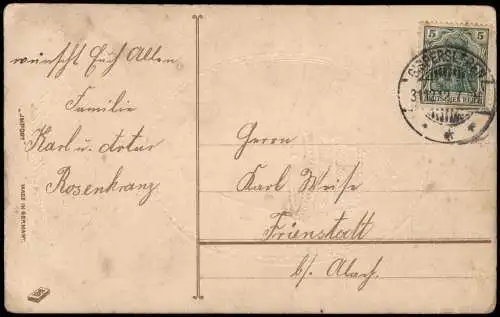 wünscht Euch Allen
Familie
Karl u. Artur
Rosenkranz
"IMPORT"
MADE IN GERMANY.
5 5
DEUTSCHES REICH
GISPERSLEBEN
31.12.12
Herrn
Karl Weise
Frienstätt
b/. Alach.